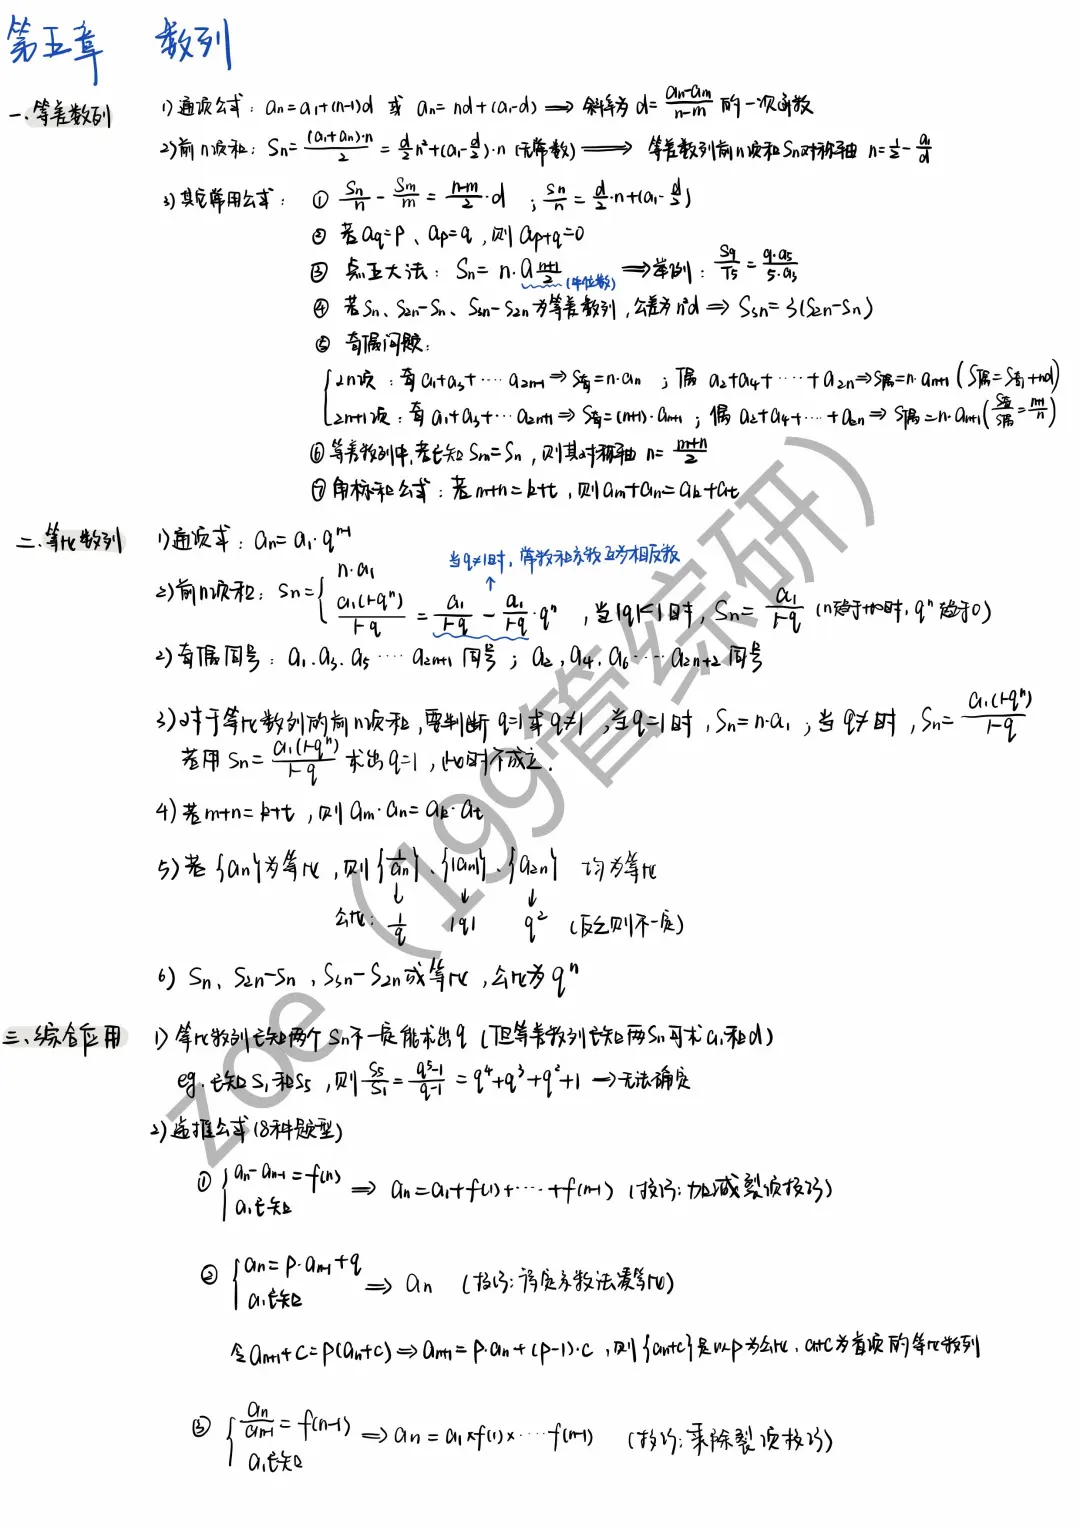 第五章 数列
一.等差数列 1)通项公式：an=a1+(n-1)d 或 an=nd+(a1-d) ⟹ 斜率为 d=(an-am)/(n-m) 的一次函数
2)前n项和：Sn=(a1+an)·n/2 = d/2 n²+(a1-d/2)·n (无常数) ⟹ 等差数列前n项和Sn对称轴 n=1/2-a1/d
3)其它常用公式：① Sn/n - Sm/m = (n-m)/2·d ；Sn/n = d/2·n+(a1-d/2)
② 若aq=p、ap=q，则ap+q=0
③ 点五大法：Sn=n·a(n+1)/2 (中位数) ⟹ 举例：S9/T5 = 9·a5/5·a3
④ 若Sn、S2n-Sn、S3n-S2n为等差数列，公差为n²d ⟹ S3n=3(S2n-Sn)
⑤ 奇偶问题：
2n项：奇 a1+a3+⋯a2n-1 ⟹ S奇=n·an ；偶 a2+a4+⋯+a2n ⟹ S偶=n·an+1 (S偶=S奇+nd)
2n+1项：奇 a1+a3+⋯a2n+1 ⟹ S奇=(n+1)·an+1 ；偶 a2+a4+⋯+a2n ⟹ S偶=n·an+1 (S奇/S偶=(n+1)/n)
⑥ 等差数列中,若已知Sm=Sn，则其对称轴 n=(m+n)/2
⑦ 角标和公式：若m+n=k+t，则am+an=ak+at
二.等比数列 1)通项公式：an=a1·qⁿ⁻¹
当q≠1时，常数和系数互为相反数
2)前n项和：Sn={ n·a1
a1(1-qⁿ)/(1-q) = a1/(1-q) - a1/(1-q)·qⁿ ，当|q|<1时，Sn=a1/(1-q) (n趋于+∞时，qⁿ趋于0)
2)奇偶同号：a1.a3.a5⋯a2n+1同号；a2,a4.a6⋯a2n+2同号
3)对于等比数列的前n项和，要判断q=1或q≠1，当q=1时，Sn=n·a1；当q≠1时，Sn=a1(1-qⁿ)/(1-q)
若用Sn=a1(1-qⁿ)/(1-q)求出q=1，此时不成立.
4)若m+n=k+t，则am·an=ak·at
5)若{an}为等比，则{1/an}、{|an|}、{a2n} 均为等比
公比：1/q |q| q² (反之则不一定)
6) Sn、S2n-Sn，S3n-S2n成等比，公比为qⁿ
三.综合应用 1)等比数列已知两个Sn不一定能求出q (但等差数列已知两Sn可求a1和d)
eg.已知S1和S5，则S5/S1=(q⁵-1)/(q-1)=q⁴+q³+q²+1 → 无法确定
2)递推公式(8种题型)
① { an-an-1=f(n)
a1已知 ⟹ an=a1+f(1)+⋯+f(n-1) (技巧：加减裂项技巧)
② { an=p·an-1+q
a1已知 ⟹ an (技巧：待定系数法凑等比)
令an+1+c=p(an+c) ⟹ an+1=p·an+(p-1)·c，则{an+c}是以p为公比，a1+c为首项的等比数列
③ { an/an-1=f(n-1)
a1已知 ⟹ an=a1×f(1)×⋯f(n-1) (技巧：乘除裂项技巧)
zoe（199管综研）